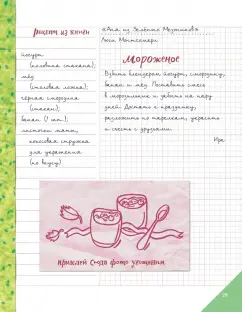 Рецепт из книги
«Аня из Зелёных Мезонинов»
Люси Монтгомери
Мороженое
йогурт
(половина стакана);
мёд
(столовая ложка);
чёрная смородина
(стакан);
банан (1 шт.);
листочки мяты,
кокосовая стружка
для украшения
(по вкусу)
Взбить блендером йогурт, смородину,
банан и мёд. Поставить смесь
в морозильник и забыть на пару
дней. Достать к празднику,
разложить по тарелкам, украсить
и съесть с друзьями.
Ира
ПРИКЛЕЙ СЮДА ФОТО УГОЩЕНИЯ
29